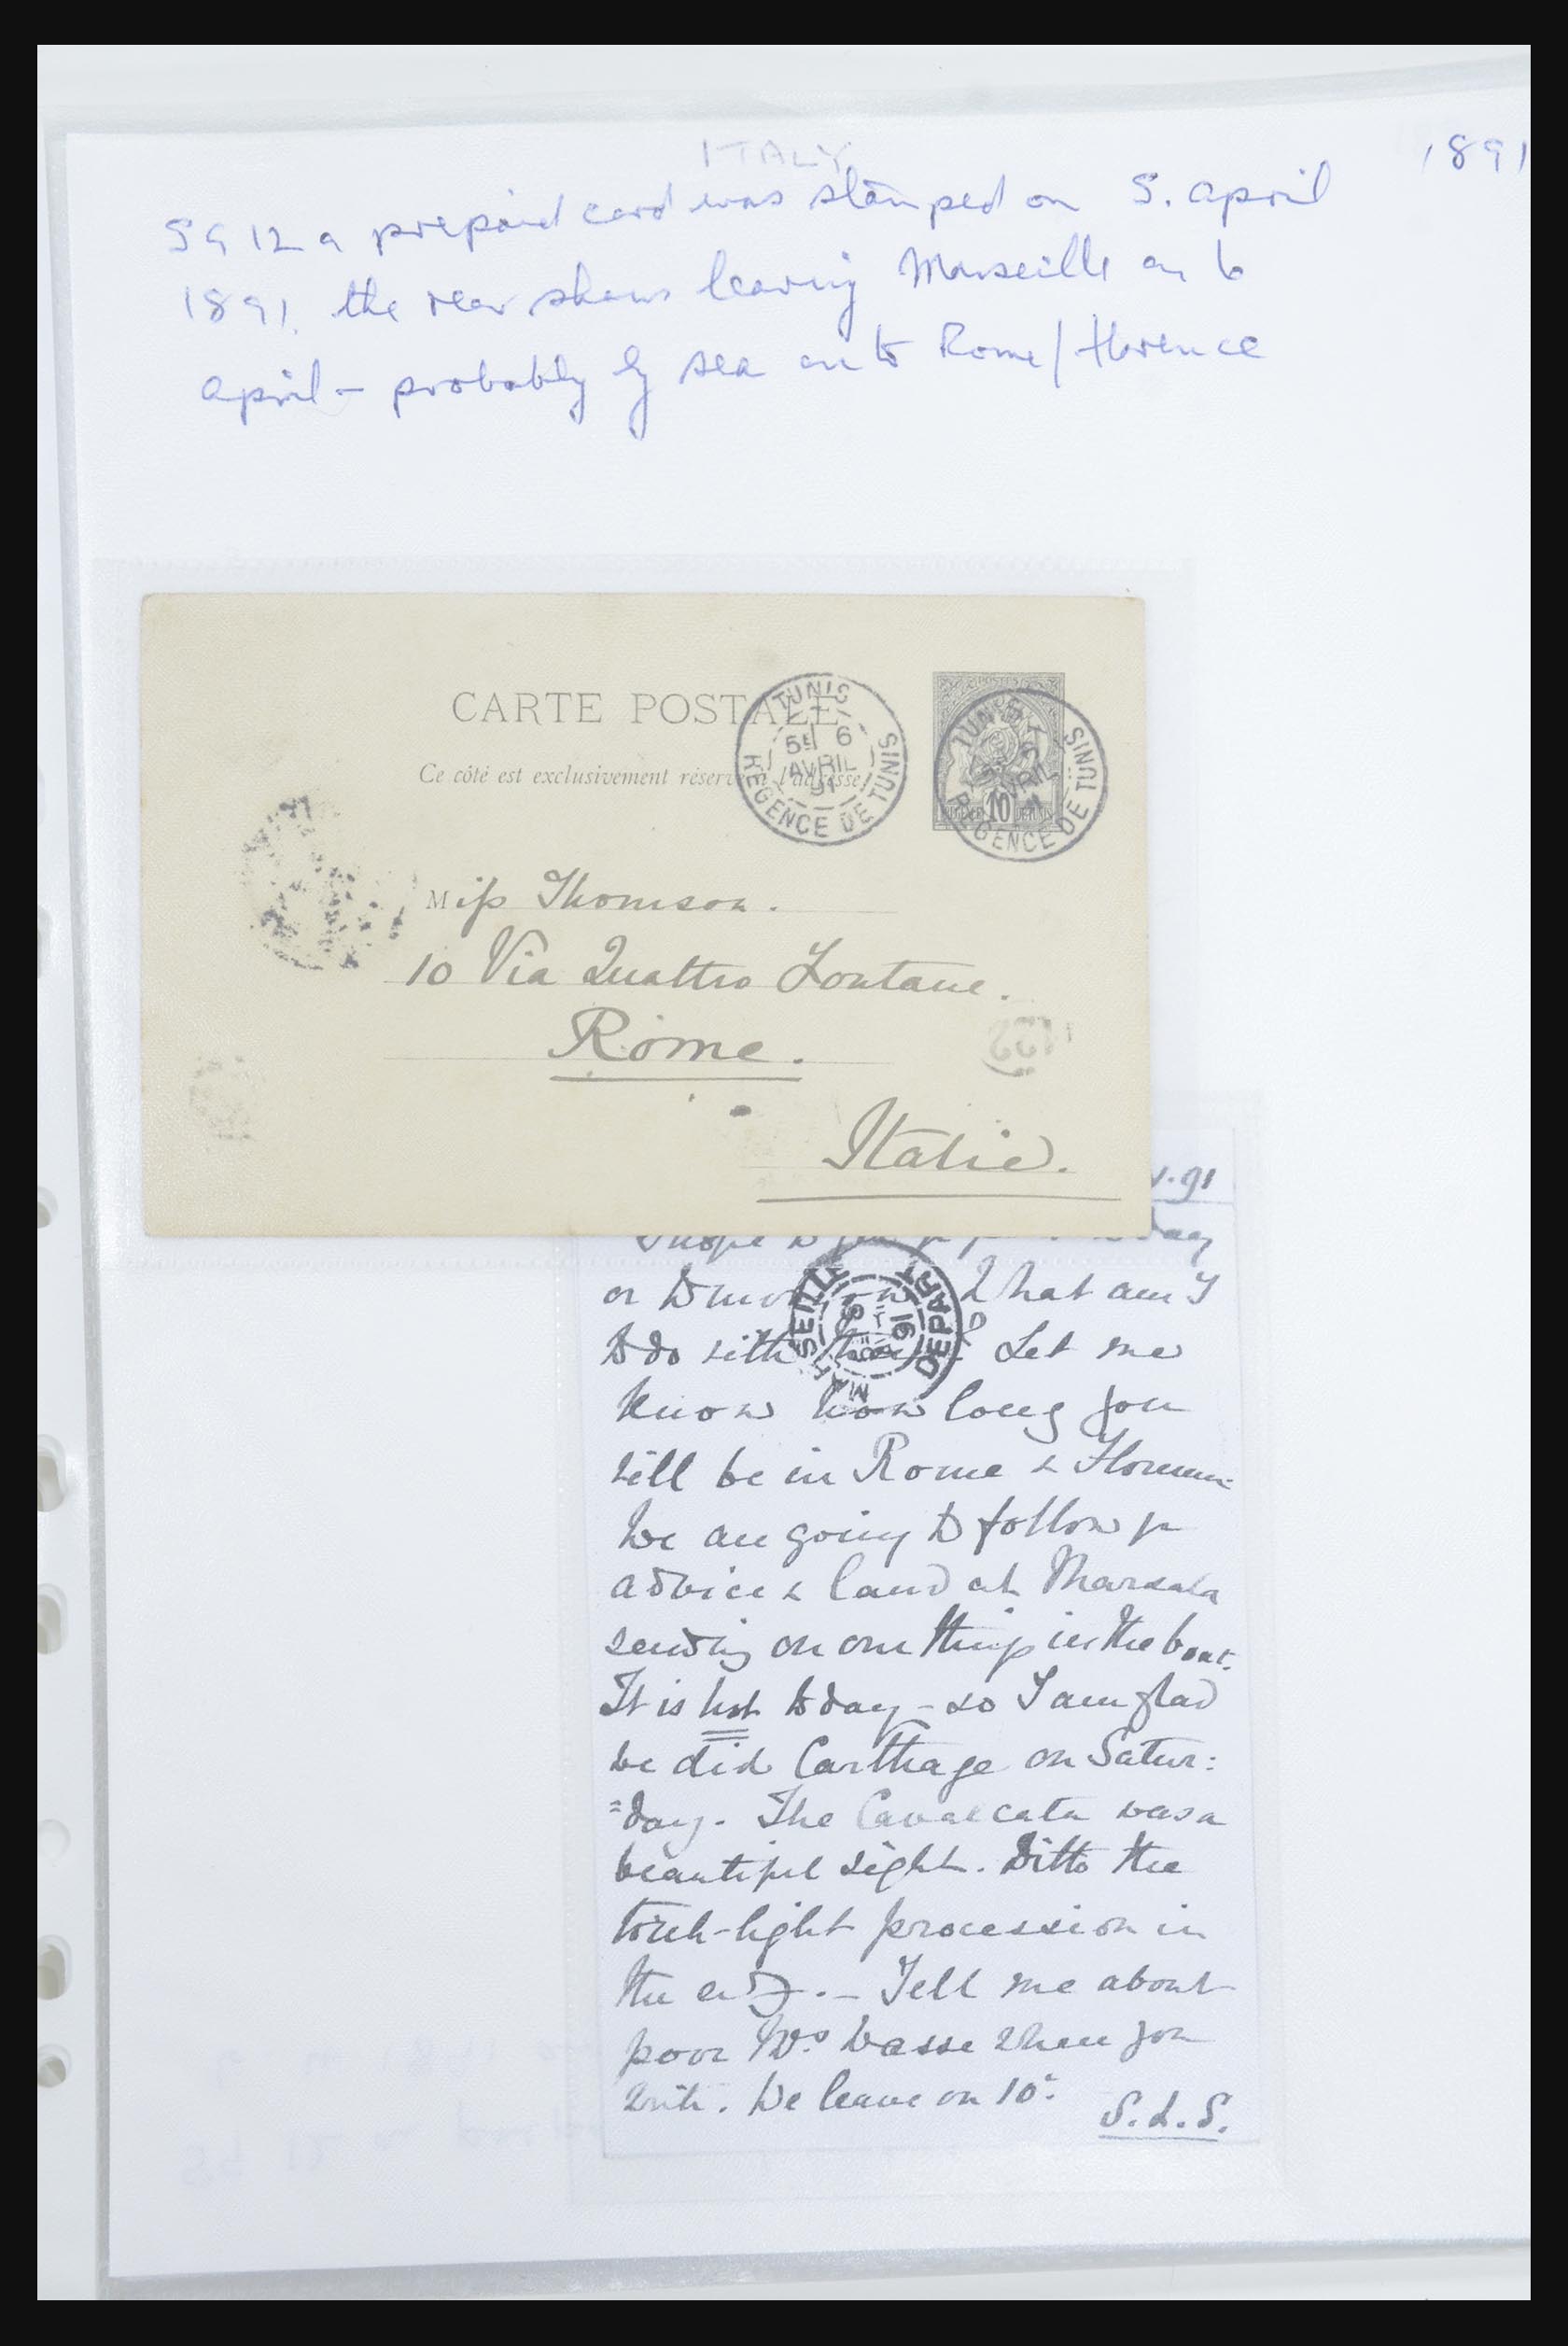 ITALY
1891
SG 12 a prepaid card was stamped on 5. april
1891. the rear shows leaving Marseille on 6
april - probably by sea on to Rome / Florence
CARTE POSTALE
Ce côté est exclusivement réservé à l'adresse
TUNIS
5E 6
AVRIL
91
REGENCE DE TUNIS
POSTES
TUNIS
AVRIL
REGENCE DE TUNIS
10
Miss Thomson.
10 Via Quattro Fontane.
Rome.
Italie.
122
v. 91
I hope to day
or tomorrow. What am I
to do with Let me
know how long you
will be in Rome & Florence
We are going to follow yr
advice & land at Marsala
sending on our things in the boat.
It is hot today - so I am glad
we did Carthage on Satur:
=day. The Cavalcata was a
beautiful sight. Ditto the
torch-light procession in
the evg. - Tell me about
poor Wasse when you
write. We leave on 10th
S.L.S.
MARSEILLE
DEPART
91